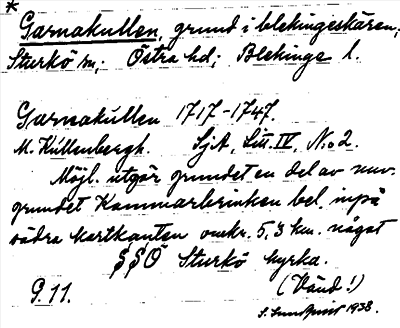 *
Garnakullen, grund i blekingeskären;
Sturkö sn; Östra hd; Blekinge l.
Garnakullen 1717-1747.
M. Kullenbergh. SjA, Litt. IV, No 2.
Möjl. utgör grundet en del av nuv.
grundet Kammarbrinken bel. inpå
södra kartkanten omkr. 5.3 km. något
SSÖ Sturkö kyrka.
9.11. (Vänd!)
S. Lundquist 1938.